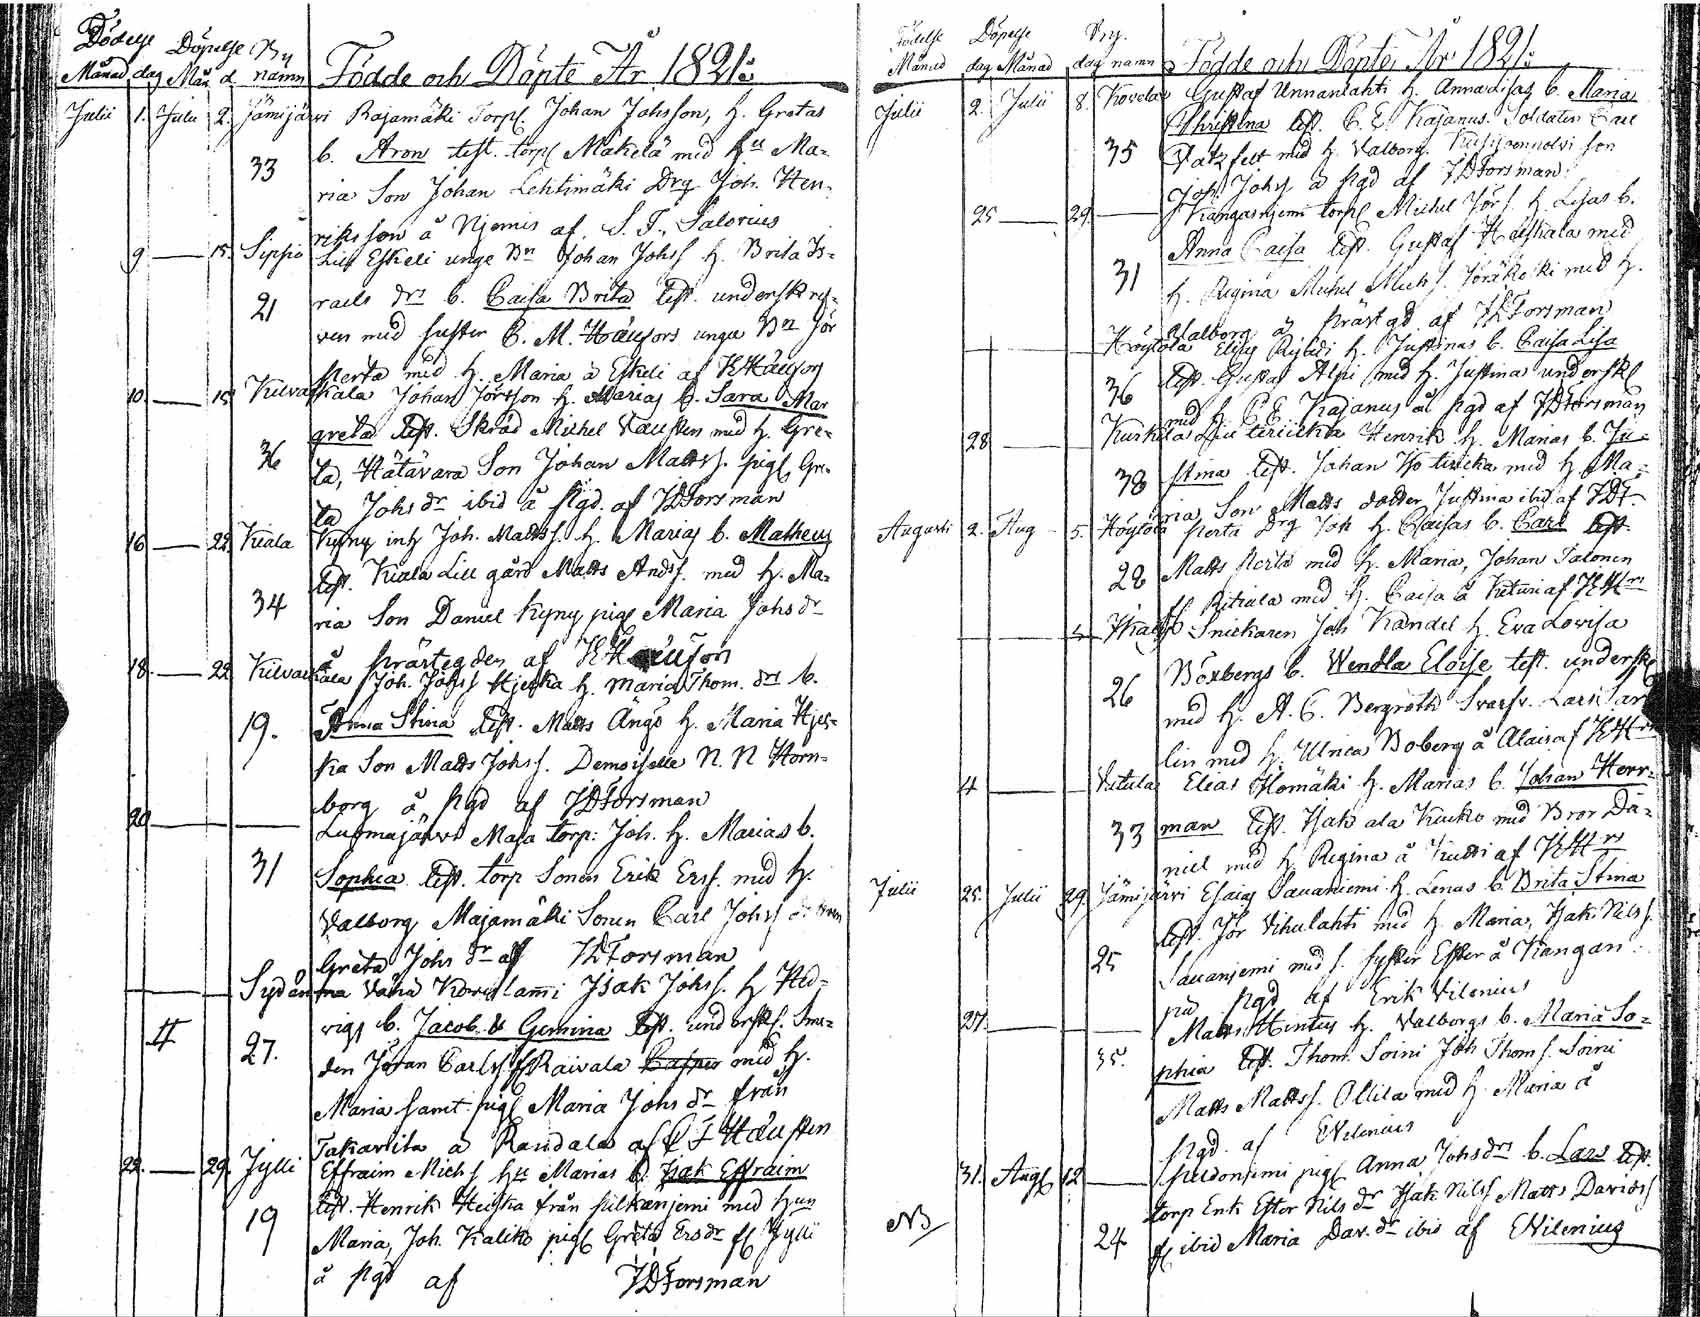 Födelse Döpelse By
Månad dag Mån d. namn Födde och Döpte År 1821:
Julii 1. Julii 2. Jämijärvi Rajamäki Torp. Johan Johsson, h. Gretas
b. Aron test. torp Mäkelä med hu Ma-
33
ria Son Johan Lehtimäki Drg Joh. Hen-
riksson å Njemis af S. F. Salovius
9 15. Sippio Lill Eskeli unge Bn Johan Johss h. Brita Is-
21 raels drs b. Caisa Brita test. underskrif-
ven med syster C. M. unge Bn Jör
Perta med h. Maria å Eskeli af
10. 15. Kilvakkala Johan Jörsson h. Marias b. Sara Mar
greta test. Skräd Michel med h. Gre-
36 ta, Hätävara Son Johan Matts s. pig Gre-
ta Johs dr ibid å Pgd. af JDForsman
16 22. Kiala Kyny inh Joh. Matts s. h. Marias b. Matheus
test. Kiala Lill gård Matts Ands s. med h. Ma-
34 ria Son Daniel Kyny pig Maria Johs dr
å Prästegden af
18. 22. Kilvakkala Joh. Johss Hjerka h. Maria Thom. drs b.
19. Anna Stina test. Matts Ängö h. Maria Hjer-
ka Son Matts Johs s. Demoiselle N. N Horn-
borg å Pgd af JDForsman
20 Luomajärvi Masa torp: Joh. h. Marias b.
31 Sophia test. torp Sonen Erik Ers s. med h.
Valborg Majamäki Sonen Carl Johs s
Greta Johs dr af JDForsman
Sydänma Vaha Kovelami Isak Johs s. h Hed-
II vigs b. Jacob & Gemina test. underskr. Sme-
27. den Jöran Carls s. f Raivala med h.
Maria samt pig Maria Johs dr från
Takamita å Randala af
22. 29. Jylli Effraim Mich s hu Marias b Isak Effraim
test. Henrik Heiska från Pilkänjemi med hun
19 Maria, Joh. Kaliko pig Greta Ersdr f Jylli
å Pgd af JDForsman
Födelse Döpelse By.
Månad dag Månad dag namn Födde och Döpte År 1821:
Julii 2. Julii 8. Kovelax Gustaf Unnanlahti h. Anna Lisas b. Maria
Christina test. C. E. Kajanus. Soldaten Carl
35 med h. Valborg. son
Joh. Johs s å Pgd af JDForsman.
25 29. Kangasnjemi torp Michel Jör s. h. Lisas b.
Anna Caisa test. Gustaf Heiskala med
31 h. Regina Michel Mich s. Joräkoski med h.
Valborg å Prästgd. af JDForsman
Höytölä Elias h. Justinas b. Caisa Lisa
36 test. Gustaf Alpi med h. Justina underskr
med h C. E. Kajanus å Pgd af JDForsman
28 Kurkela Henrik h. Marias b. Ju-
38 stina test. Johan med h. Ma-
ria Son Matts dotter Justina ibid. af JDF
Augusti 2. Aug 5. Höytölä Perta Drg Joh h. Caisas b. Carl test.
28 Matts Perta med h. Maria, Johan Salonen
f. Ritiala med h. Caisa å af
Ikalis Snickaren Joh Kandel h. Eva Lovisa
Böxbergs b. Wendla Eloise test. underskr
26 med h. A. C. Bergroth Svarfv. Lars
lin med h. Ulrica Boberg å af
4 Vatula Elias Homäki h. Marias b. Johan Herr-
33 man test. Isak ala Kauko med Bror Da-
niel med h Regina å af
Julii 25. Julii 29. Jämijärvi Esaias Sauanjemi h. Lenas b. Brita Stina
test. Jör Vihulahti med h. Maria, Isak Nils s.
25 Sauanjemi med s. syster Ester å Kangan
på Pgd af Erik Vilenius
27. Matts h. Valborgs b. Maria So-
35. phia test. Thom. Soini Joh Thom s. Soini
Matts Matts s. Ollila med h Maria å
Pgd. af EVilenius
31. Aug 12 pig Anna Johsdrs b. Lars test.
NB torp Enk Ester Nils dr Isak Nils s Matts Davids s
24 f ibid Maria Dav. dr ibid af EVilenius